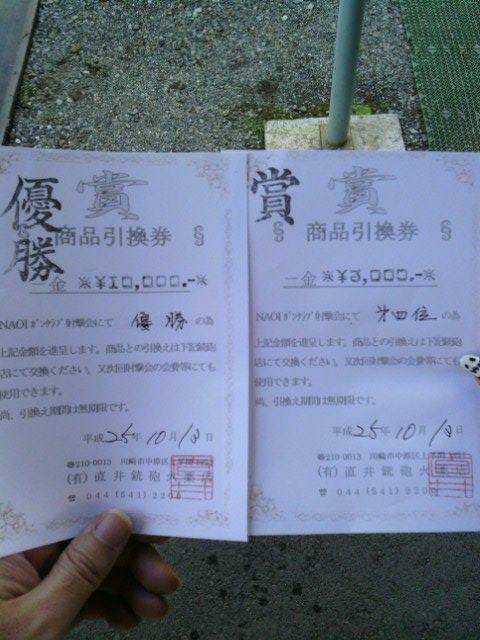 優勝
賞
商品引換券
一金 ※¥10,000.-※
NAOIガンクラブ射撃会にて 優勝 の為
上記金額を進呈します。商品との引換えは下記銃砲
店にて交換ください。又次回射撃会の会費等にても
使用できます。
尚、引換え期間は無期限です。
平成25年10月18日
〒210-0013 川崎市中原区上
(有) 直井銃砲火薬店
☎ 044 (541) 220
賞
賞
商品引換券
一金 ※¥3,000.-※
NAOIガンクラブ射撃会にて 第四位 の為
上記金額を進呈します。商品との引換えは下記銃砲
店にて交換ください。又次回射撃会の会費等にても
使用できます。
尚、引換え期間は無期限です。
平成25年10月18日
〒210-0013 川崎市中原区上
(有) 直井銃砲火
☎ 044 (541) 220